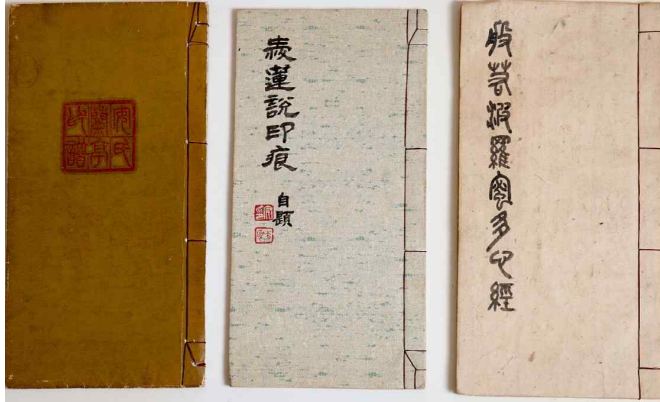 愛蓮說印痕
自題
般若波羅蜜多心經